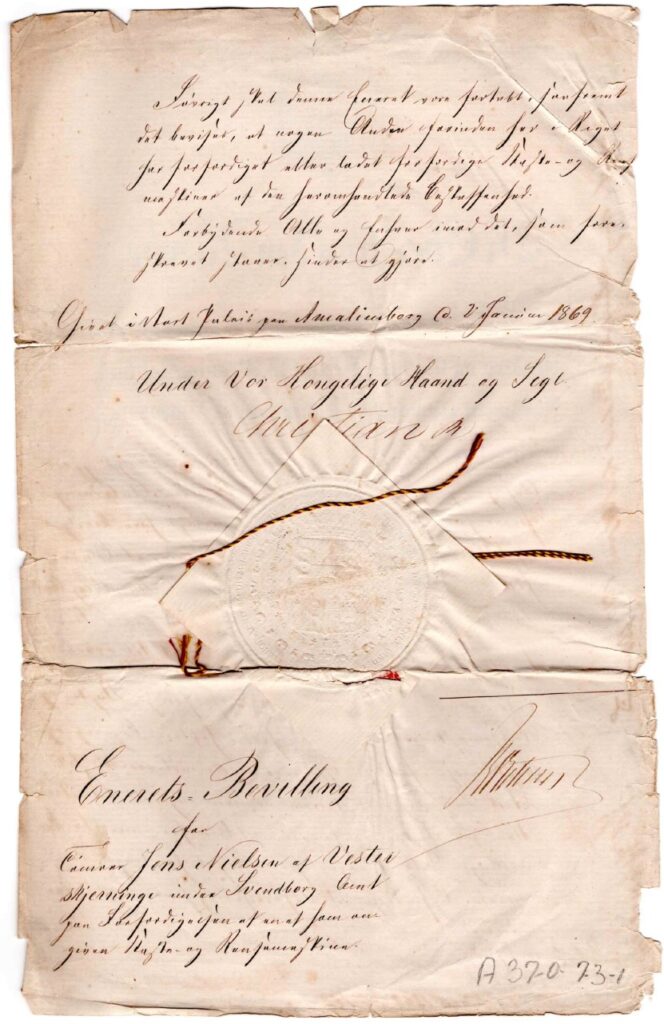 Iøvrigt skal denne Eneret være fortabt, forsaavidt
det bevises, at nogen Anden forinden her i Riget
har forfærdiget eller ladet forfærdige Kaste- og Rense
maskiner af den heromhandlede Beskaffenhed.
Forbydende Alle og Enhver imod det, som fore-
skrevet staaer, Hinder at gjøre.
Givet i Vort Palais paa Amalienborg d. 2 Januar 1869
Under Vor Kongelige Haand og Segl
Christian R
Enerets-Bevilling
for
Tømrer Jens Nielsen af Vester
Skjerninge under Svendborg Amt
paa Forfærdigelsen af en af ham an-
given Kaste- og Rensemaskine.
A 370 73-1